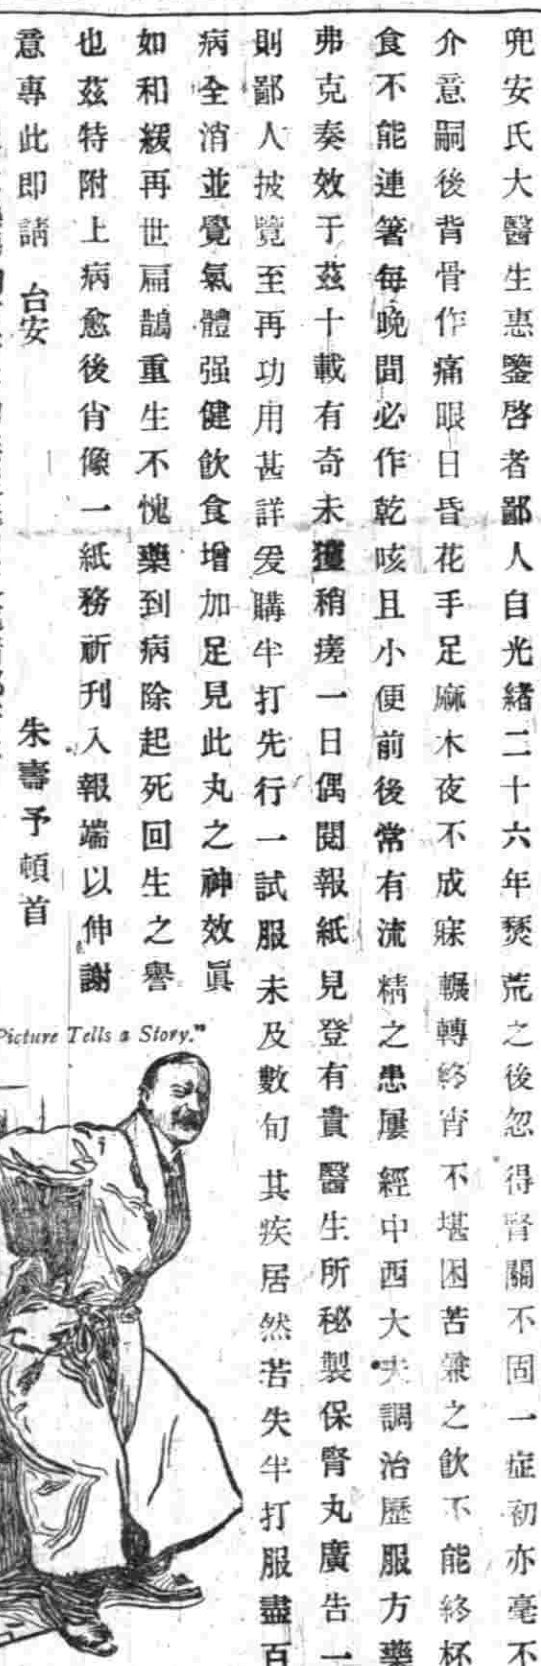 兜安氏大醫生惠鑒啓者鄙人自光緒二十六年焚荒之後忽得腎關不固一症初亦毫不
介意嗣後背骨作痛眼日昏花手足麻木夜不成寐輾轉終宵不堪困苦兼之飲不能終杯
食不能連箸每晚間必作乾咳且小便前後常有流精之患屢經中西大夫調治歷服方藥
弗克奏效于茲十載有奇未獲稍痊一日偶閱報紙見登有貴醫生所秘製保腎丸廣告一
則鄙人披覽至再功用甚詳爰購半打先行一試服未及數旬其疾居然若失半打服盡百
病全消並覺氣體强健飲食增加足見此丸之神效眞
如和緩再世扁鵲重生不愧藥到病除起死回生之譽
也茲特附上病愈後肖像一紙務祈刊入報端以伸謝
意專此卽請 台安
朱壽予頓首
Picture Tells a Story."